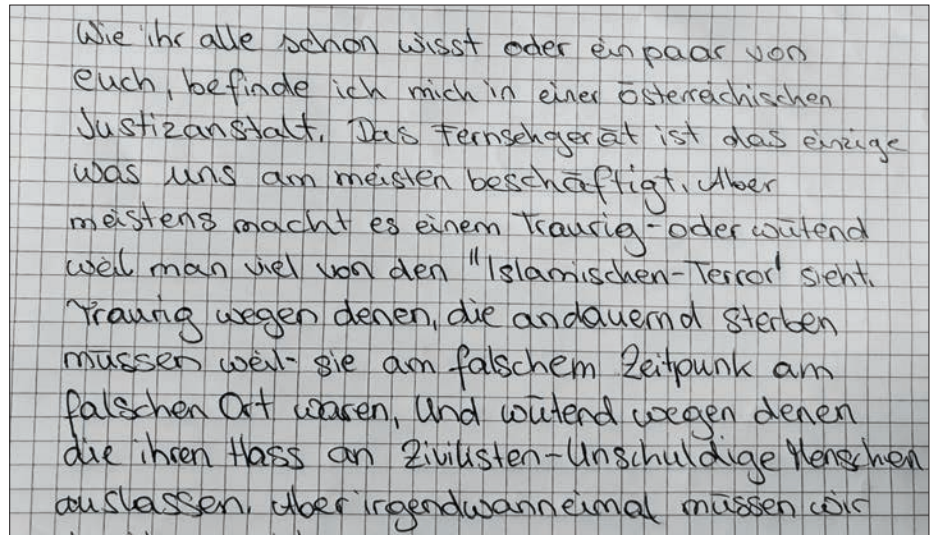 Wie ihr alle schon wisst oder ein paar von
euch, befinde ich mich in einer österreichischen
Justizanstalt. Das Fernsehgerät ist das einzige
was uns am meisten beschäftigt. Aber
meistens macht es einem Traurig-oder wütend
weil man viel von den "Islamischen-Terror" sieht.
Traurig wegen denen, die andauernd sterben
müssen weil- sie am falschem Zeitpunk am
falschen Ort waren, Und wütend wegen denen
die ihren Hass an Zivilisten-Unschuldige Menschen
auslassen. Aber irgendwanneimal müssen wir